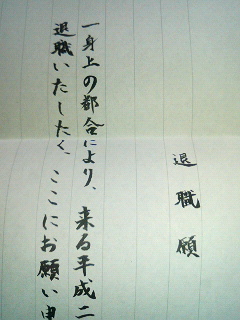 退職願
一身上の都合により、来る平成二
退職いたしたく、ここにお願い申